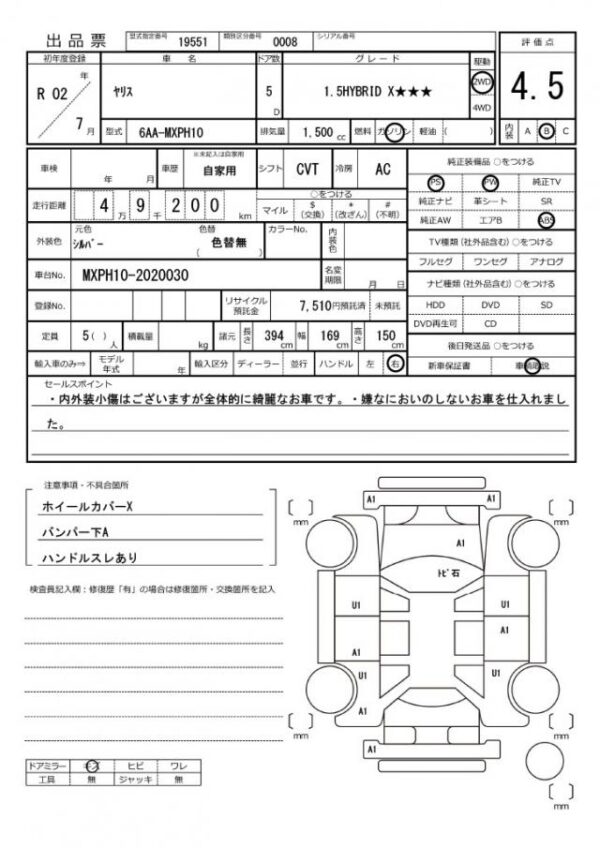 出品票 型式指定番号 19551 類別区分番号 0008 シリアル番号
評価点
初年度登録 車名 ドア数 グレード 駆動
R 02 年 7 月 ヤリス 5 D 1.5HYBRID X★★★ 2WD 4WD
4.5
型式 6AA-MXPH10 排気量 1,500 cc 燃料 ガソリン 軽油 ( )
内装 A B C
車検 年 月 車歴 ※未記入は自家用 自家用 シフト CVT 冷房 AC
純正装備品 ○をつける
PS PW 純正TV
走行距離 4 万 9 千 2 0 0 km ○をつける マイル $ (交換) * (改ざん) # (不明)
純正ナビ 革シート SR
純正AW エアB ABS
外装色 元色 シルバー 色替 色替無 ( ) カラーNo. 内装色
TV種類 (社外品含む) ○をつける
フルセグ ワンセグ アナログ
車台No. MXPH10-2020030 名変期限 月 日
ナビ種類 (社外品含む) ○をつける
HDD DVD SD
登録No. リサイクル預託金 7,510円預託済 未預託
DVD再生可 CD
定員 5 ( ) 人 積載量 kg 諸元 長さ 394 cm 幅 169 cm 高さ 150 cm
後日発送品 ○をつける
輸入車のみ⇒ モデル年式 年 輸入区分 ディーラー 並行 ハンドル 左 右
新車保証書
セールスポイント
・内外装小傷はございますが全体的に綺麗なお車です。・嫌なにおいのしないお車を仕入れまし
た。
注意事項・不具合箇所
ホイールカバーX
バンパー下A
ハンドルスレあり
検査員記入欄：修復歴「有」の場合は修復箇所・交換箇所を記入
A1 A1
mm mm
A1
トビ石
U1 U1
A1 A1
U1 U1
A1
mm mm
A1
mm
ドアミラー キズ ヒビ ワレ
工具 無 ジャッキ 無